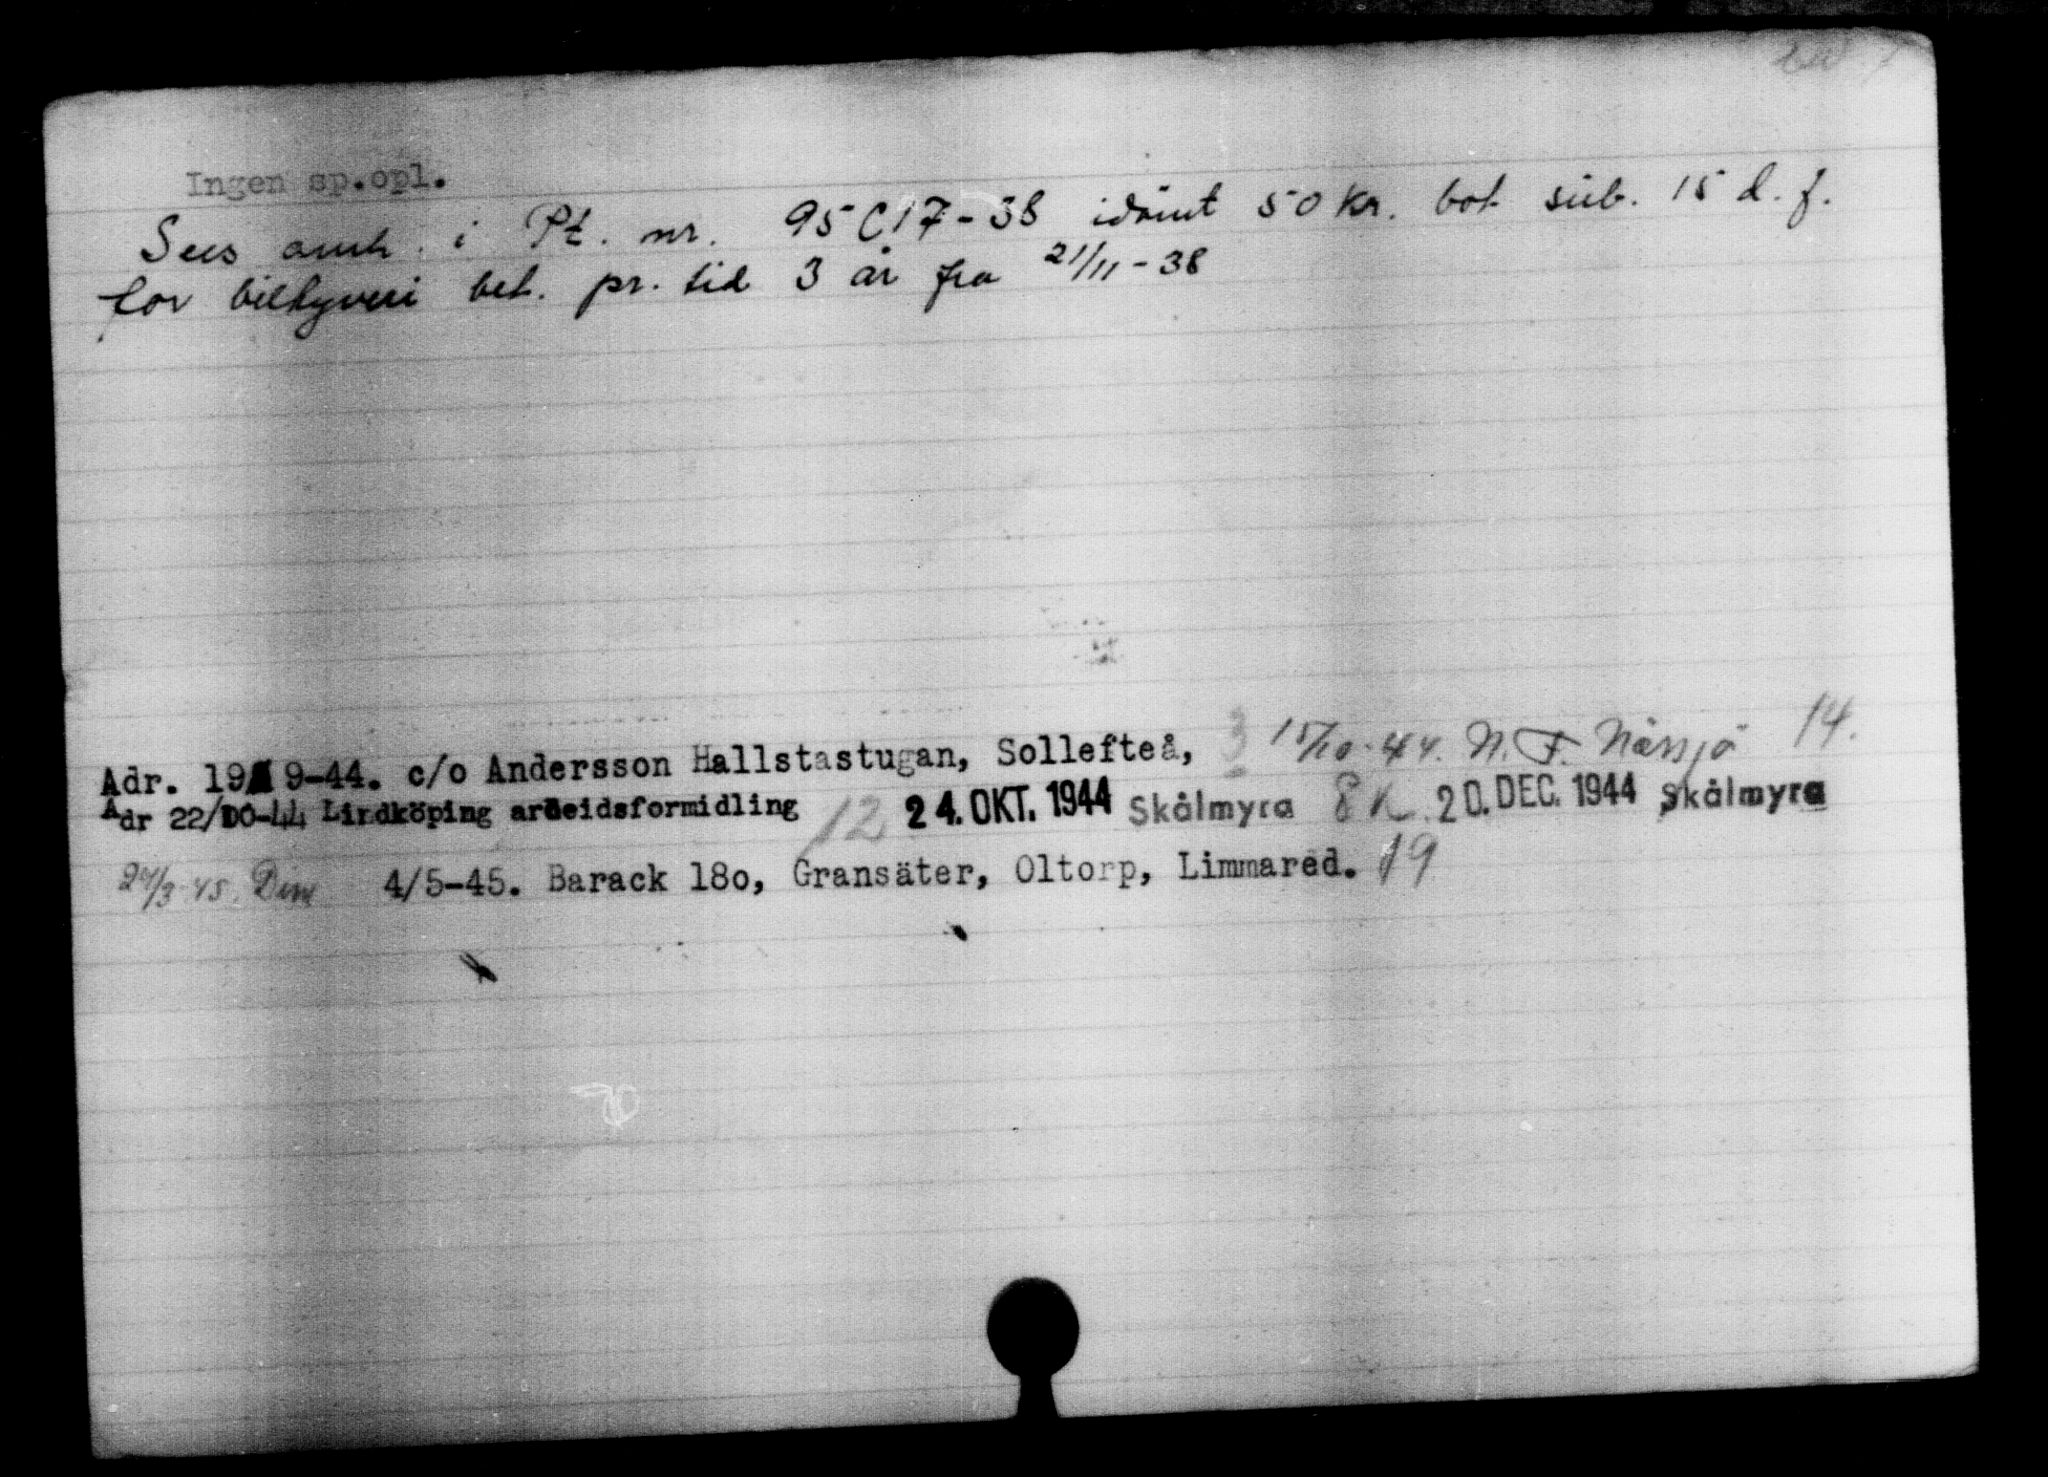 Ingen sp.opl.
Sees anm. i Pt. nr. 95 C 17-38 idömt 50 kr. bot sub. 15 d. f.
for biltyveri bet. pr. tid 3 år fra 21/11-38
Adr. 19 9-44. c/o Andersson Hallstastugan, Sollefteå, 3 15/10-44. N.F. Nässjö 14.
Adr 22/10-44 Lindköping arbeidsformidling 12 24. OKT. 1944 Skålmyra 8 K 20. DEC. 1944 Skålmyra
4/5-45. Barack 18o, Gransäter, Oltorp, Limmared. 19